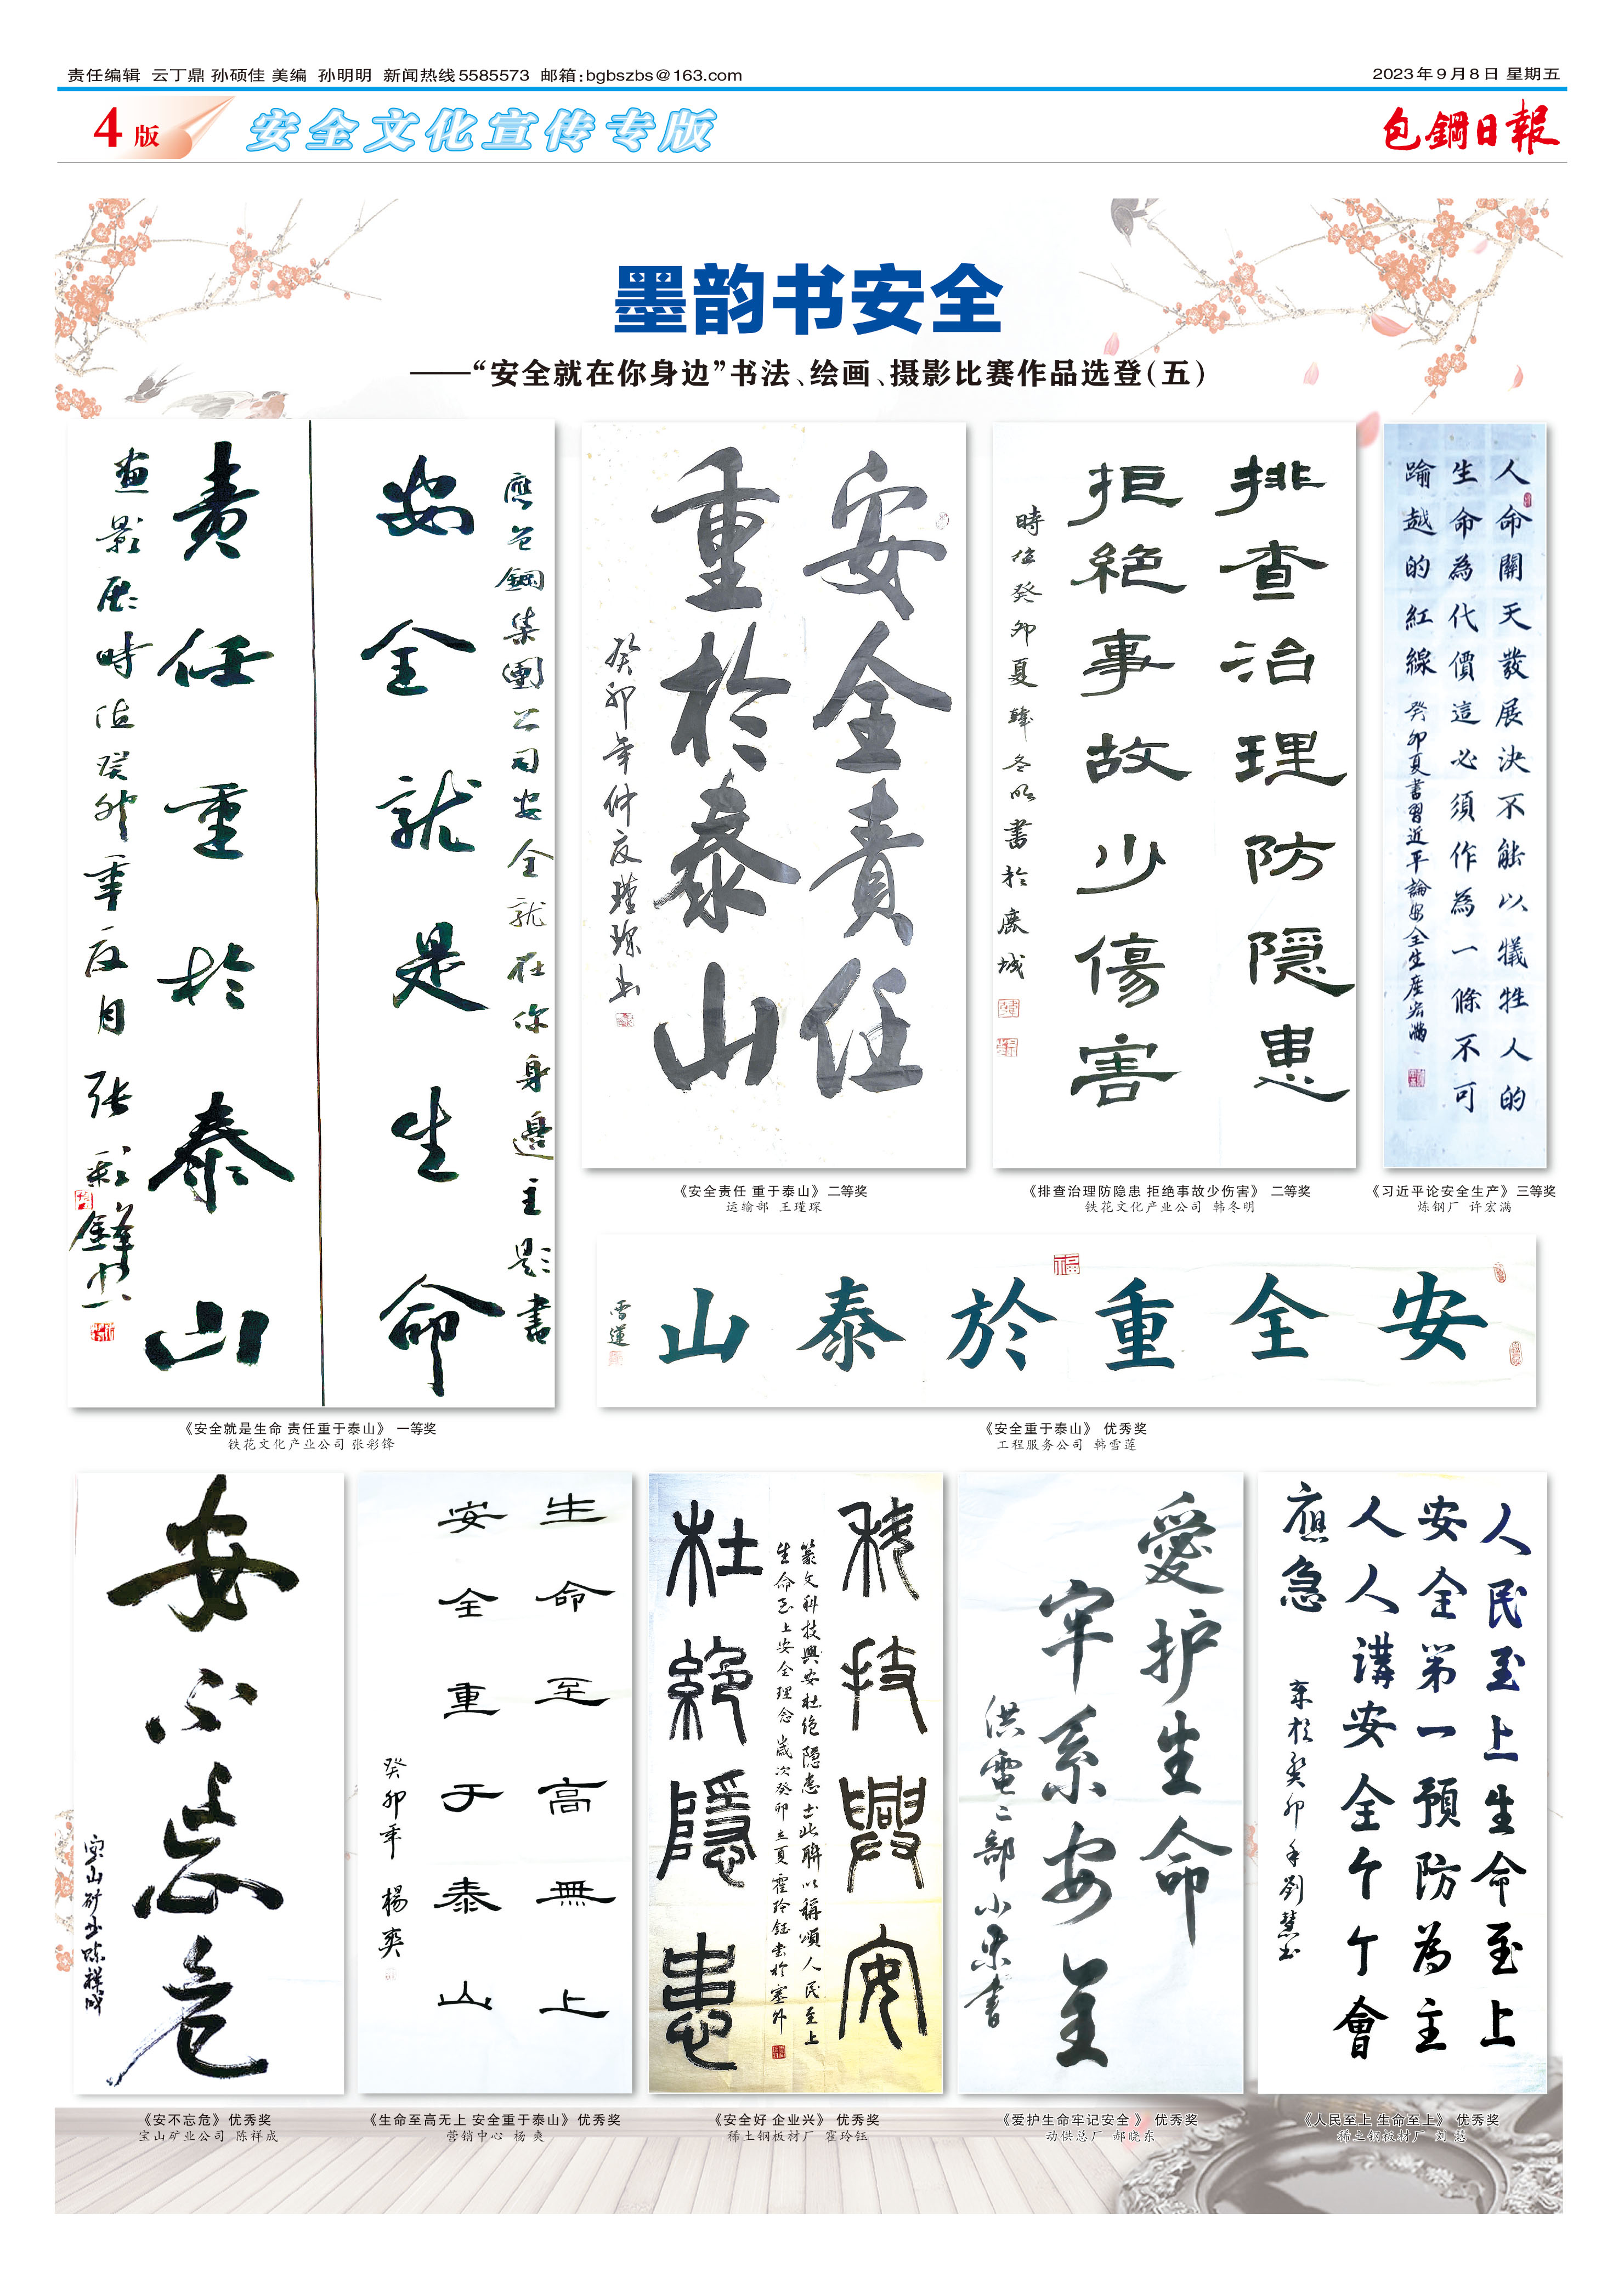 责任编辑 云丁鼎 孙硕佳 美编 孙明明 新闻热线5585573 邮箱:bgbszbs@163.com
2023年9月8日 星期五
4版
安全文化宣传专版
包鋼日報
墨韵书安全
——“安全就在你身边”书法、绘画、摄影比赛作品选登(五)
應包鋼集團公司安全就在你身邊主题書
安全就是生命
責任重於泰山
畫影展時值癸卯年夏月張彩鋒书
《安全就是生命 责任重于泰山》 一等奖
铁花文化产业公司 张彩锋
安全責任
重於泰山
癸卯年仲夏瑾琛书
《安全责任 重于泰山》二等奖
运输部 王瑾琛
排查治理防隱患
拒絕事故少傷害
時值癸卯夏韓冬明書於鹿城
《排查治理防隐患 拒绝事故少伤害》 二等奖
铁花文化产业公司 韩冬明
人命關天發展決不能以犧牲人的
生命為代價這必須作為一條不可
踰越的紅線 癸卯夏書習近平論安全生産宏滿
《习近平论安全生产》三等奖
炼钢厂 许宏满
安全重於泰山
福
雪蓮
《安全重于泰山》 优秀奖
工程服务公司 韩雪莲
安不忘危
宝山矿业陈祥成
《安不忘危》优秀奖
宝山矿业公司 陈祥成
生命至高無上
安全重于泰山
癸卯年 楊爽
《生命至高无上 安全重于泰山》优秀奖
营销中心 杨 爽
科技興安
篆文科技興安杜绝隱患书此聯以稱頌人民至上
生命至上安全理念 歲次癸卯立夏霍玲鈺书於塞外
杜絕隱患
《安全好 企业兴》 优秀奖
稀土钢板材厂 霍玲钰
愛护生命
牢系安全
供電二部小東書
《爱护生命牢记安全 》 优秀奖
动供总厂 郝晓东
人民至上生命至上
安全第一預防為主
人人講安全个个會
應急
癸卯年劉慧书
《人民至上 生命至上》 优秀奖
稀土钢板材厂 刘 慧